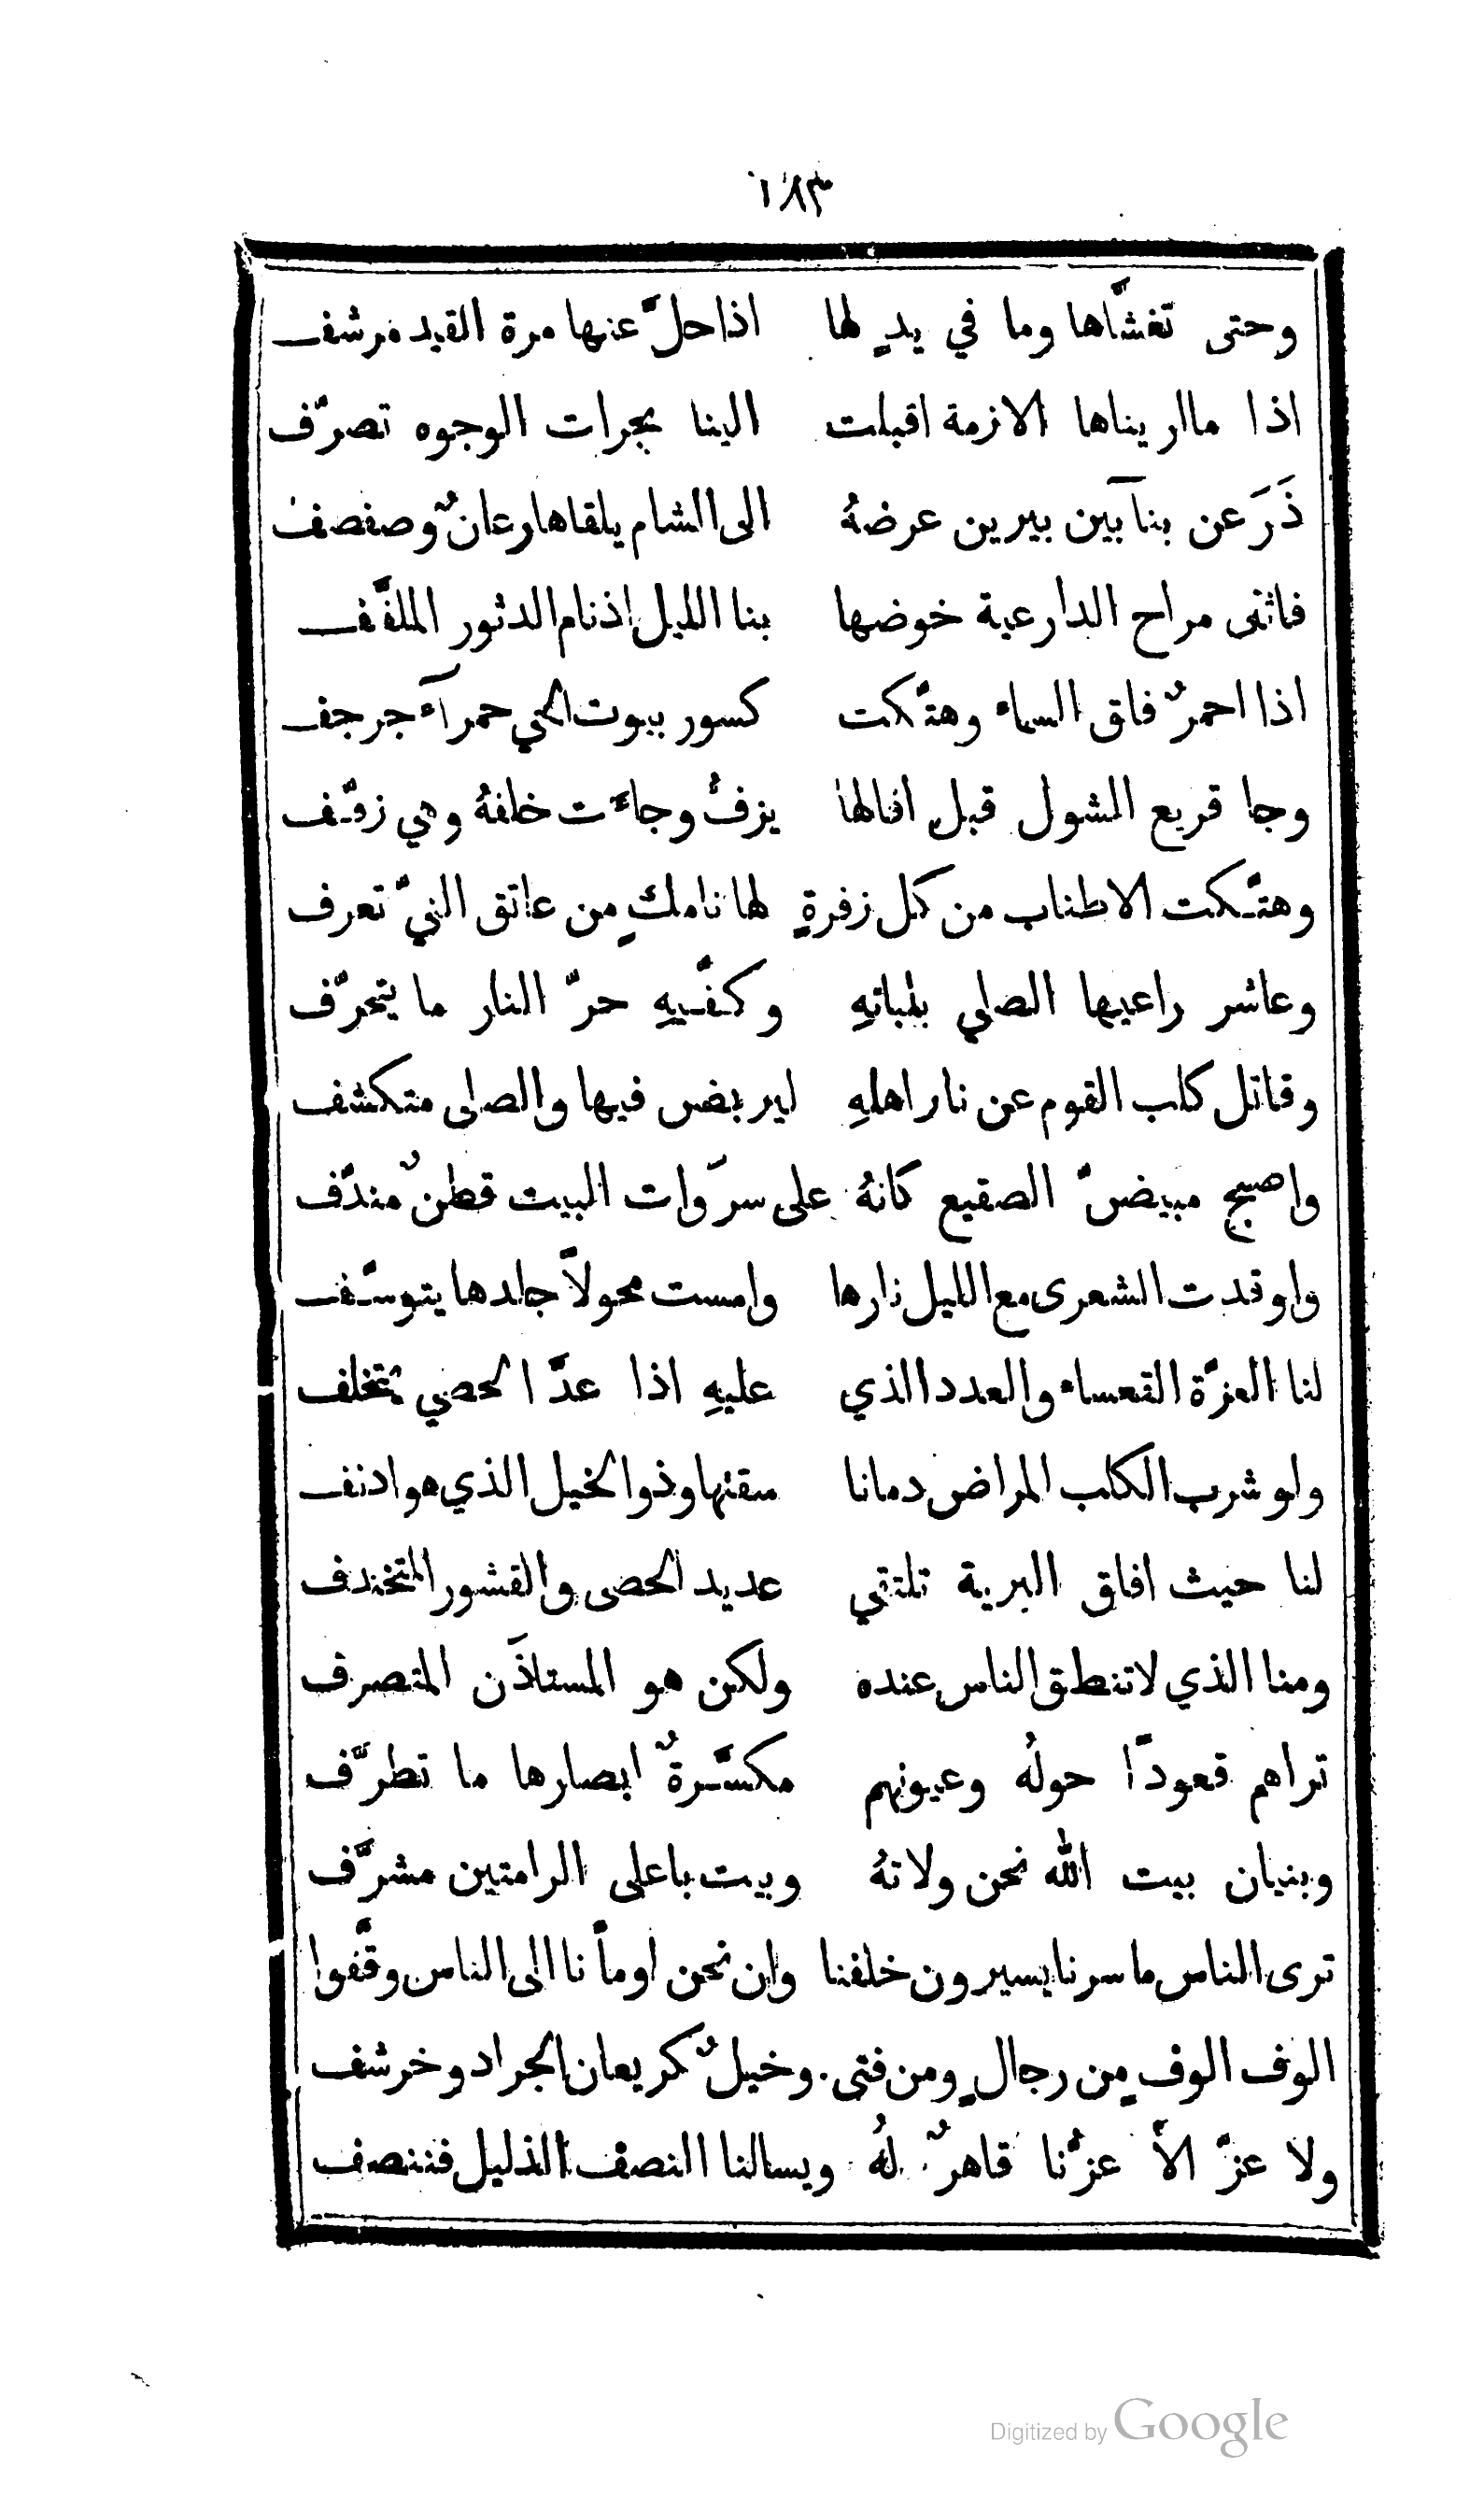 ١٨٣
وحتى تغشَّاها وما في يدٍ لها اذا حلّ عنها مرة القيد مرشف
اذا ما اريناها الازمة اقبلت الينا بحرات الوجوه تصرّف
ذَرَعن بنا بَين بيرين عرضهُ الى الشام يلقاها رعانٌ وصفصف
فاثنى مراح الدارعية خوضها بنا الليل اذ نام الدثور الملفَّف
اذا احمرّ فاق السماء وهتّكت كسور بيوت الحي حمرآء جرجف
وجا قريع الشول قبل افالها يزفُّ وجاءَت خلفهُ وهي زفّف
وهتّكت الاطناب من كل زفرةٍ لها تامكٍ من عاتق النيّ تعرف
وعاشر راعيها الصلي بلبانهِ وكفَّيهِ حرّ النار ما يتحرّف
وقاتل كلب القوم عن نار اهلهِ ليربض فيها والصلى متكشف
واصبح مبيضّ الصقيع كانهُ على سرَوات البيت قطنٌ مندّف
واوقدت الشعرى مع الليل نارها وامست محولاً جلدها يتوسّف
لنا العزّة القعساء والعدد الذي عليهِ اذا عدّ الحصى يتخلف
ولو شرب الكلب المراض دمانا سقتها وذو الخيل الذي هو ادنف
لنا حيث افاق البرية تلتقي عديد الحصى والقشور المتخندف
ومنا الذي لا تنطق الناس عنده ولكن هو المستاذَن المتصرف
تراهم قعودًا حولهُ وعيونهم مكسَّرةٌ ابصارها ما تطرَّف
وبنيان بيت الله نحن ولاتهُ وبيت باعلى الرامتين مشرَّف
ترى الناس ما سرنا يسيرون خلفنا وان نحن اومأنا الى الناس وقَّفوا
الوف الوف من رجالٍ ومن فتى. وخيلٌ كريعان الجراد وخرشف
ولا عزّ الاَّ عزُّنا قاهرٌ لهُ ويسالنا النصف الذليل فننصف
Digitized by Google